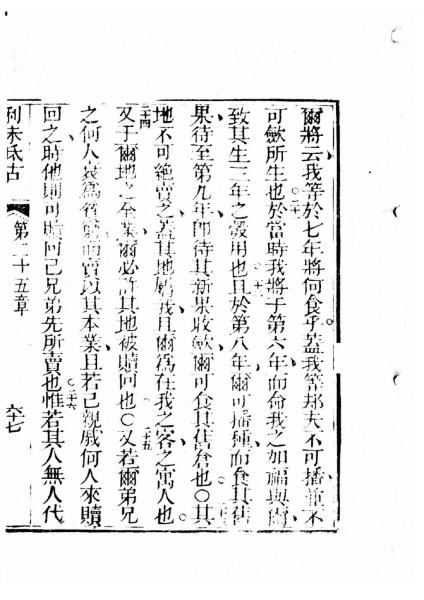 爾將云我等於七年將何食乎蓋我等却夫不可播並不
可歛所生也二十一於當時我將于第六年而命我之如福與爾
致其生三年之穀用也二十二且於第八年爾可播種而食其舊
果待至第九年即待其新果收歛爾可食其舊倉也〇二十三其
地不可絕賣之蓋其地屬我且爾爲在我之客之寓人也
二十四又于爾地之全業爾必許其地被贖回也〇二十五又若爾弟兄
之何人衰爲貧窮而賣以其本業且若己親戚何人來贖
回之時他則可贖回己兄弟先所賣也二十六惟若其人無人代
利未氏古 第二十五章 六七